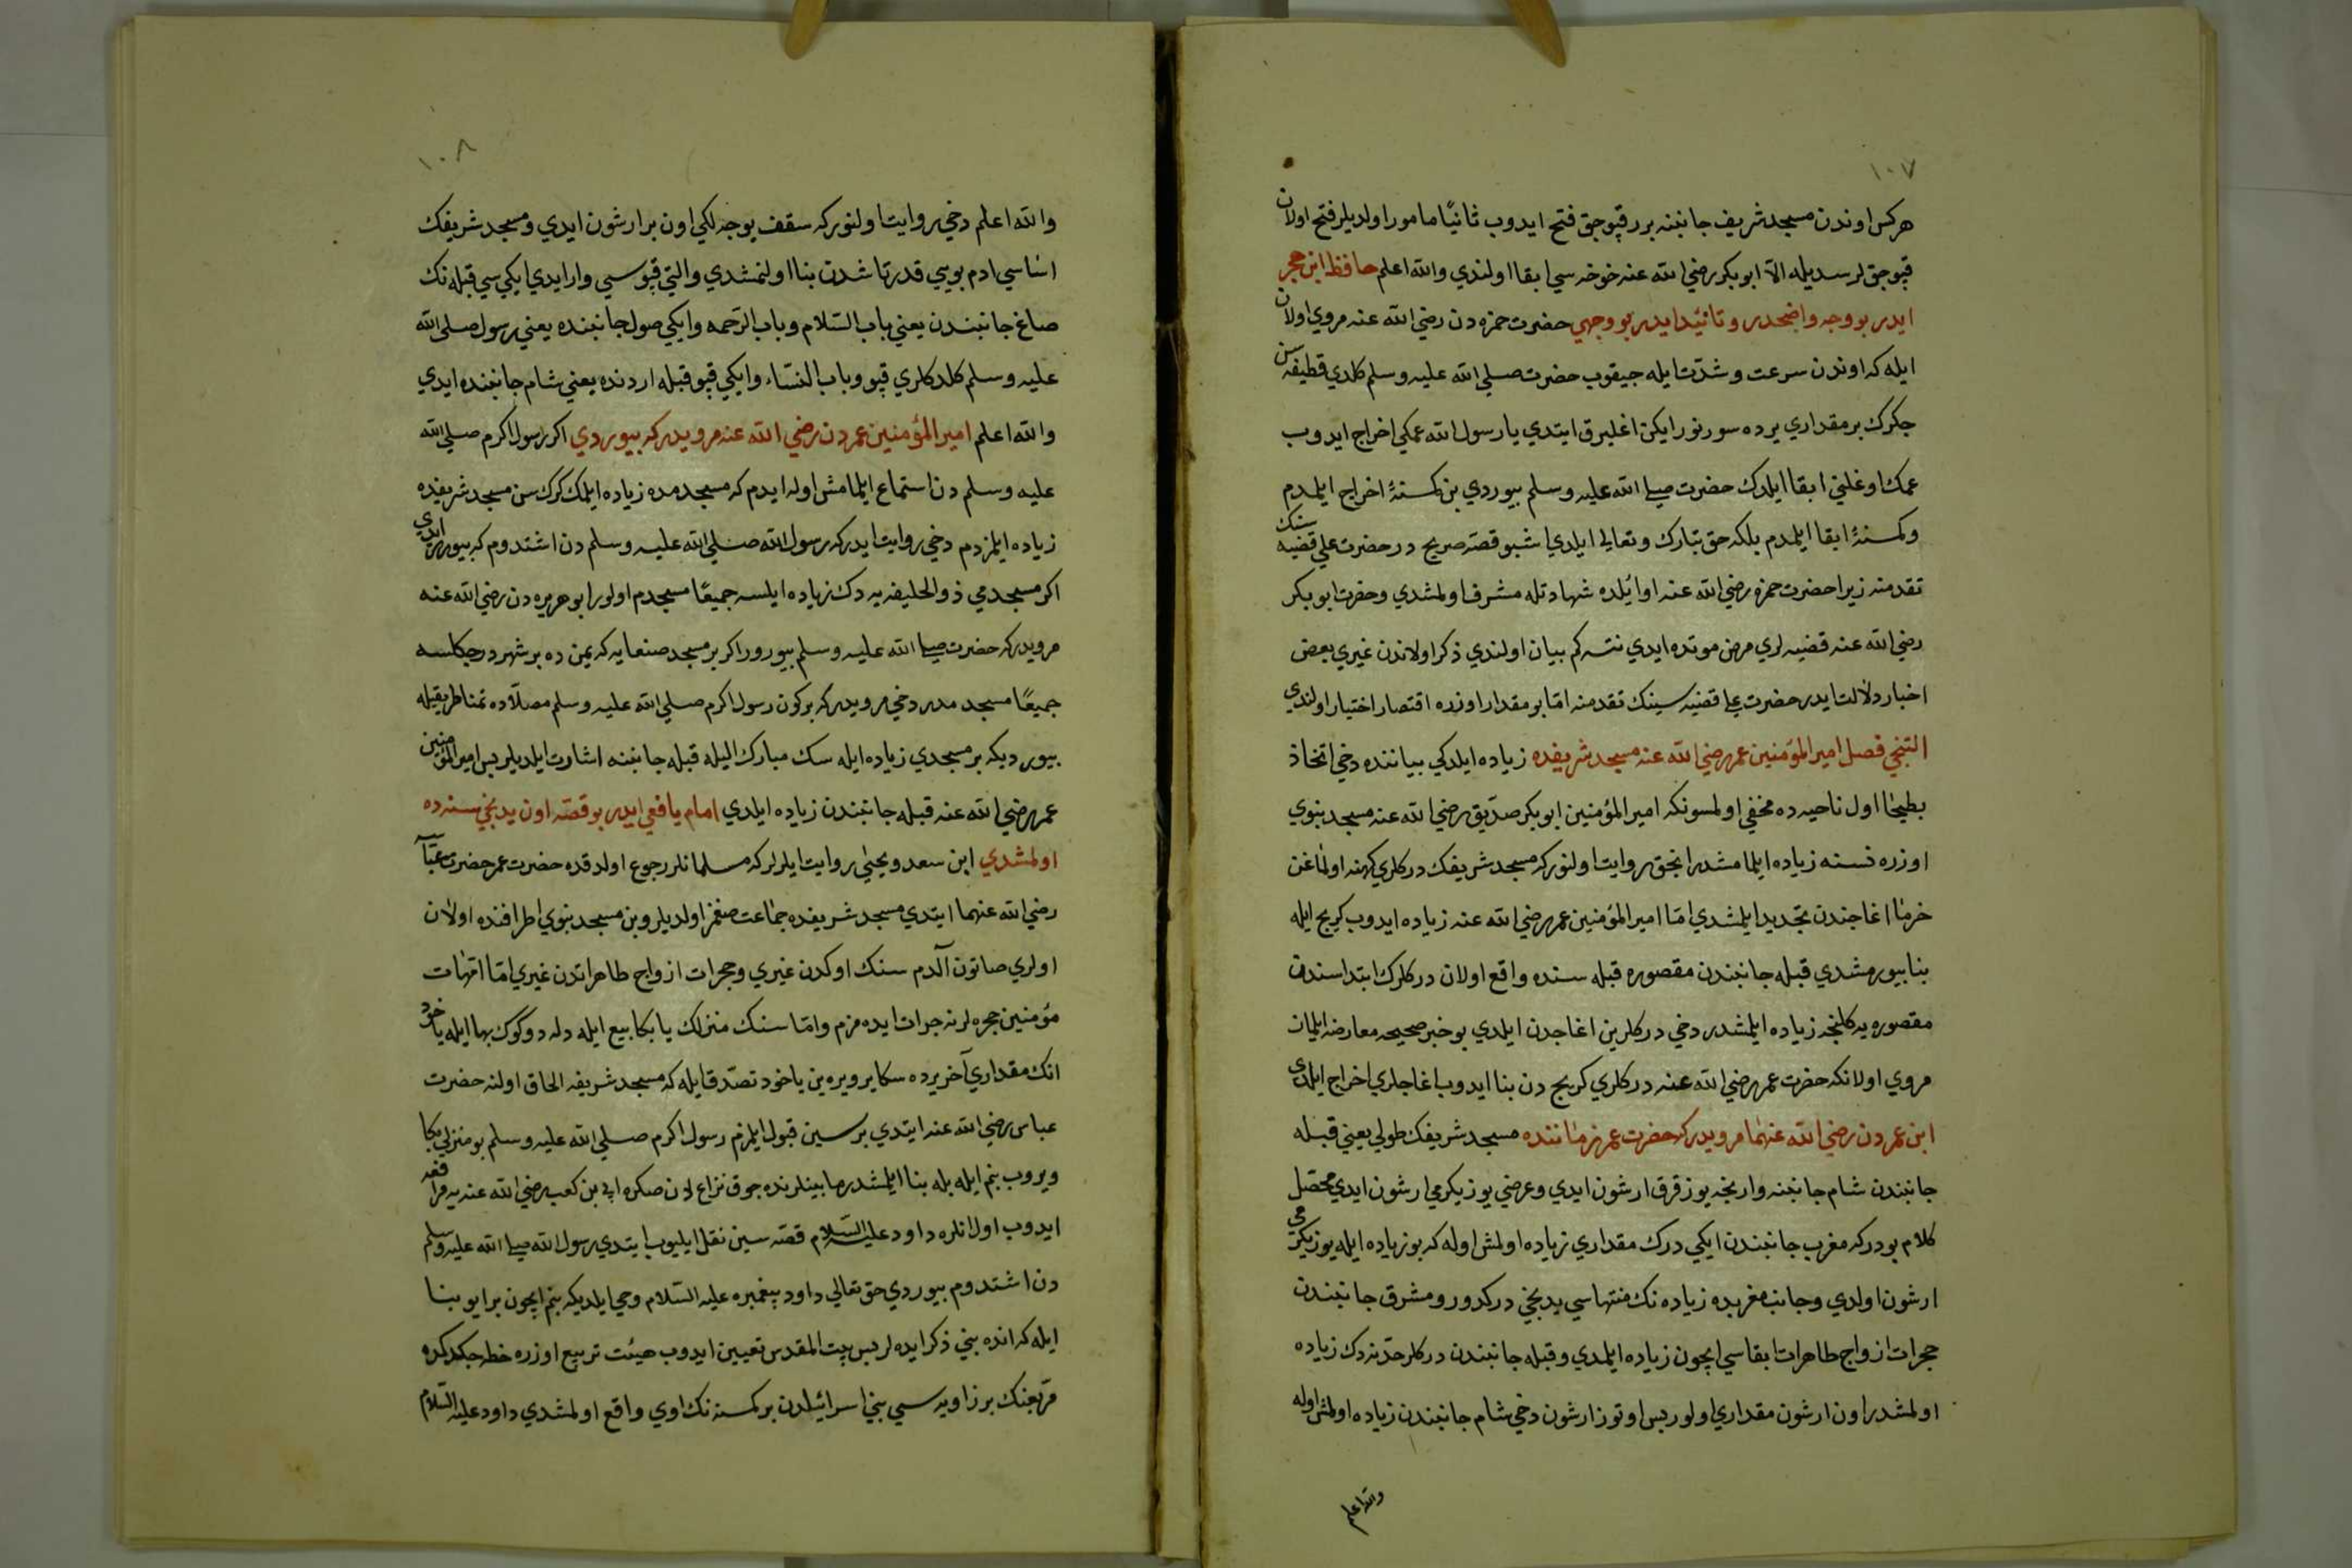 ١٠٧
هركس اوندن مسجد شريف جانبنه برر قپوجق فتح ايدوب ثانيًا مامور اولديلر فتح اولان
قپوجق لر سديله الآ ابو بكر رضي الله عنه خوخه سي ابقا اولندي والله اعلم حافظ ابن حجر
ايدر بو وجه واضحدر و تائيد ايدر بو وجهي حضرت حمزه دن رضي الله عنه مروي اولان
ايله كه اوندن سرعت و شدّت ايله جيقوب حضرت صلي الله عليه وسلم كلدي قطيفه سن
جكرك بر مقداري يرده سورنور ايكن اغليرق ايتدي يا رسول الله عمكي اخراج ايدوب
عمك اوغلني ابقا ايلدك حضرت صلي الله عليه وسلم بيوردي بن كمسنهٔ اخراج ايلمدم
و كمسنهٔ ابقا ايلمدم بلكه حق تبارك وتعالى ايلدي اشبو قصّه صريح در حضرت علي قضيه سنك
تقدمنه زيرا حضرت حمزه رضي الله عنه اوائلده شهادتله مشرف اولمشدي وحضرت ابو بكر
رضي الله عنه قضيه لري مرض موتده ايدي نته كم بيان اولندي ذكر اولاندن غيري بعض
اخبار دلالت ايدر حضرت علي قضيه سينك تقدمنه امّا بو مقدار اوزره اقتصار اختيار اولندي
التنجي فصل امير المؤمنين عمر رضي الله عنه مسجد شريفده زياده ايلدكي بياننده دخي اتخاذ
بطيحا اول ناحيه ده مخفي اولمسونكه امير المؤمنين ابو بكر صدّيق رضي الله عنه مسجد نبوي
اوزره نسنه زياده ايلمامشدر انجق روايت اولنور كه مسجد شريفك دركلري كهنه اولماغن
خرما اغاجندن تجديد ايلمشدي امّا امير المؤمنين عمر رضي الله عنه زياده ايدوب كريچ ايله
بنا بيورمشدي قبله جانبندن مقصوره قبله سنده واقع اولان دركلرك ابتداسندن
مقصوره يه كلنجه زياده ايلمشدر دخي دركلرين اغاجدن ايلدي بو خبر صحيحه معارضه ايلمان
مروي اولانكه حضرت عمر رضي الله عنه دركلري كريچ دن بنا ايدوب اغاجلري اخراج ايلدي
ابن عمر دن رضي الله عنهما مرويدر كه حضرت عمر زماننده مسجد شريفك طولي يعني قبله
جانبندن شام جانبنه وارنجه يوز قرق ارشون ايدي و عرضي يوز يكرمي ارشون ايدي محصّل
كلام بودر كه مغرب جانبندن ايكي درك مقداري زياده اولمش اوله كه بو زياده ايله يوز يكرمي
ارشون اولدي و جانب مغربده زياده نك منتهاسي يدنجي دركدور و مشرق جانبندن
حجرات ازواج طاهرات ابقاسي ايچون زياده ايلمدي و قبله جانبندن دركلر حدّنه دك زياده
اولمشدر اون ارشون مقداري اولور پس اوتوز ارشون دخي شام جانبندن زياده اولمش اوله
والله اعلم
١٠٨
والله اعلم دخي روايت اولنور كه سقف يوجه لكي اون بر ارشون ايدي و مسجد شريفك
اساسي ادم بويي قدر تاشدن بنا اولنمشدي و التي قپوسي وار ايدي ايكي سي قبله نك
صاغ جانبندن يعني باب السّلام و باب الرّحمه و ايكي صول جانبنده يعني رسول صلى الله
عليه وسلم كلدكلري قپو و باب النّساء و ايكي قپو قبله اردنده يعني شام جانبنده ايدي
والله اعلم امير المؤمنين عمر دن رضي الله عنه مرويدر كه بيوردي اكر رسول اكرم صلى الله
عليه وسلم دن استماع ايلمامش اوله ايدم كه مسجدمده زياده ايلمك كرك سن مسجد شريفده
زياده ايلمزدم دخي روايت ايدر كه رسول الله صلى الله عليه وسلم دن اشتدوم كه بيوررلر ايدي
اكر مسجدمي ذو الحليفه يه دك زياده ايلسه جميعًا مسجدم اولور ابو هريره دن رضي الله عنه
مرويدر كه حضرت صلى الله عليه وسلم بيورور اكر بر مسجد صنعايه كه يمن ده بر شهر در جكلسه
جميعًا مسجدمدر دخي مرويدر كه بر كون رسول اكرم صلى الله عليه وسلم مصلّاده تمنا طريقيله
بيورديكه بر مسجدي زياده ايله سك مبارك اليله قبله جانبنه اشارت ايلديلر پس امير المؤمنين
عمر رضي الله عنه قبله جانبندن زياده ايلدي امام يافعي ايدر بو قصّه اون يدنجي سنه ده
اولمشدي ابن سعد و يحيي روايت ايلرلر كه مسلمانلر رجوع اولدقده حضرت عمر حضرت عبّاسه
رضي الله عنهما ايتدي مسجد شريفده جماعت صغمز اولديلر و بن مسجد نبوي اطرافنده اولان
اولري صاتون آلدم سنك اوكدن غيري و حجرات ازواج طاهراتدن غيري امّا امّهات
مؤمنين حجره لرنه جرات ايده مزم و امّا سنك منزلك يا بكا بيع ايله دله دوكوك بها ايله يا خود
انك مقداري آخر يرده سكا ير ويره ين يا خود تصدّق ايله كه مسجد شريفه الحاق اولنه حضرت
عباس رضي الله عنه ايتدي برسين قبول ايلمزم رسول اكرم صلى الله عليه وسلم بو منزلي بكا
ويروب بنم ايله بله بنا ايلمشدر ما بينلرنده جوق نزاع لدن صكره ابي بن كعب رضي الله عنه يه مرافعه
ايدوب اول انلره داود عليه السّلام قصّه سين نقل ايليوب ايتدي رسول الله صلى الله عليه وسلم
دن اشتدوم بيوردي حق تعالي داود پيغمبره عليه السّلام وحي ايلديكه بنم ايچون بر ايو بنا
ايله كه انده بني ذكر ايده لر پس بيت المقدس تعيين ايدوب هيئت تربيع اوزره خطه جكدكده
مربّعنك بر زاويه سي بني اسرائيلدن بر كمسنه نك اوي واقع اولمشدي داود عليه السّلام